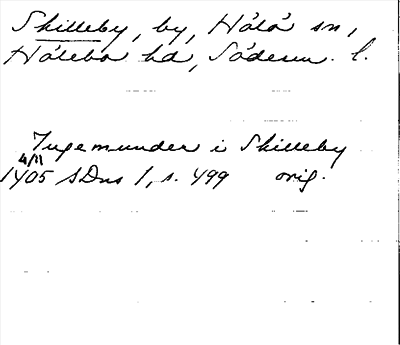 Skilleby, by, Hölö sn,
Hölebo hd, Söderm. l.
Ingemunder i Skilleby
4/11
1405 SDns 1, s. 499 orig.